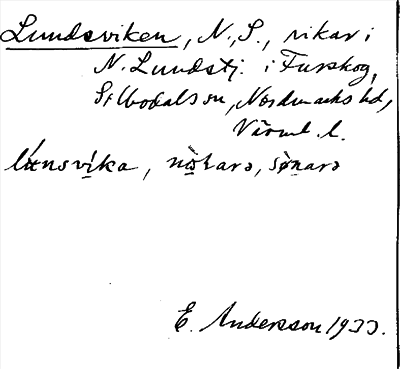 Lundsviken, N., S., vikar i
N. Lundstj. i Furskog,
Silbodals sn, Nordmarks hd,
Värml. l.
lúnsvíka, nòlarə, sø̀narə
E. Andersson 1933.